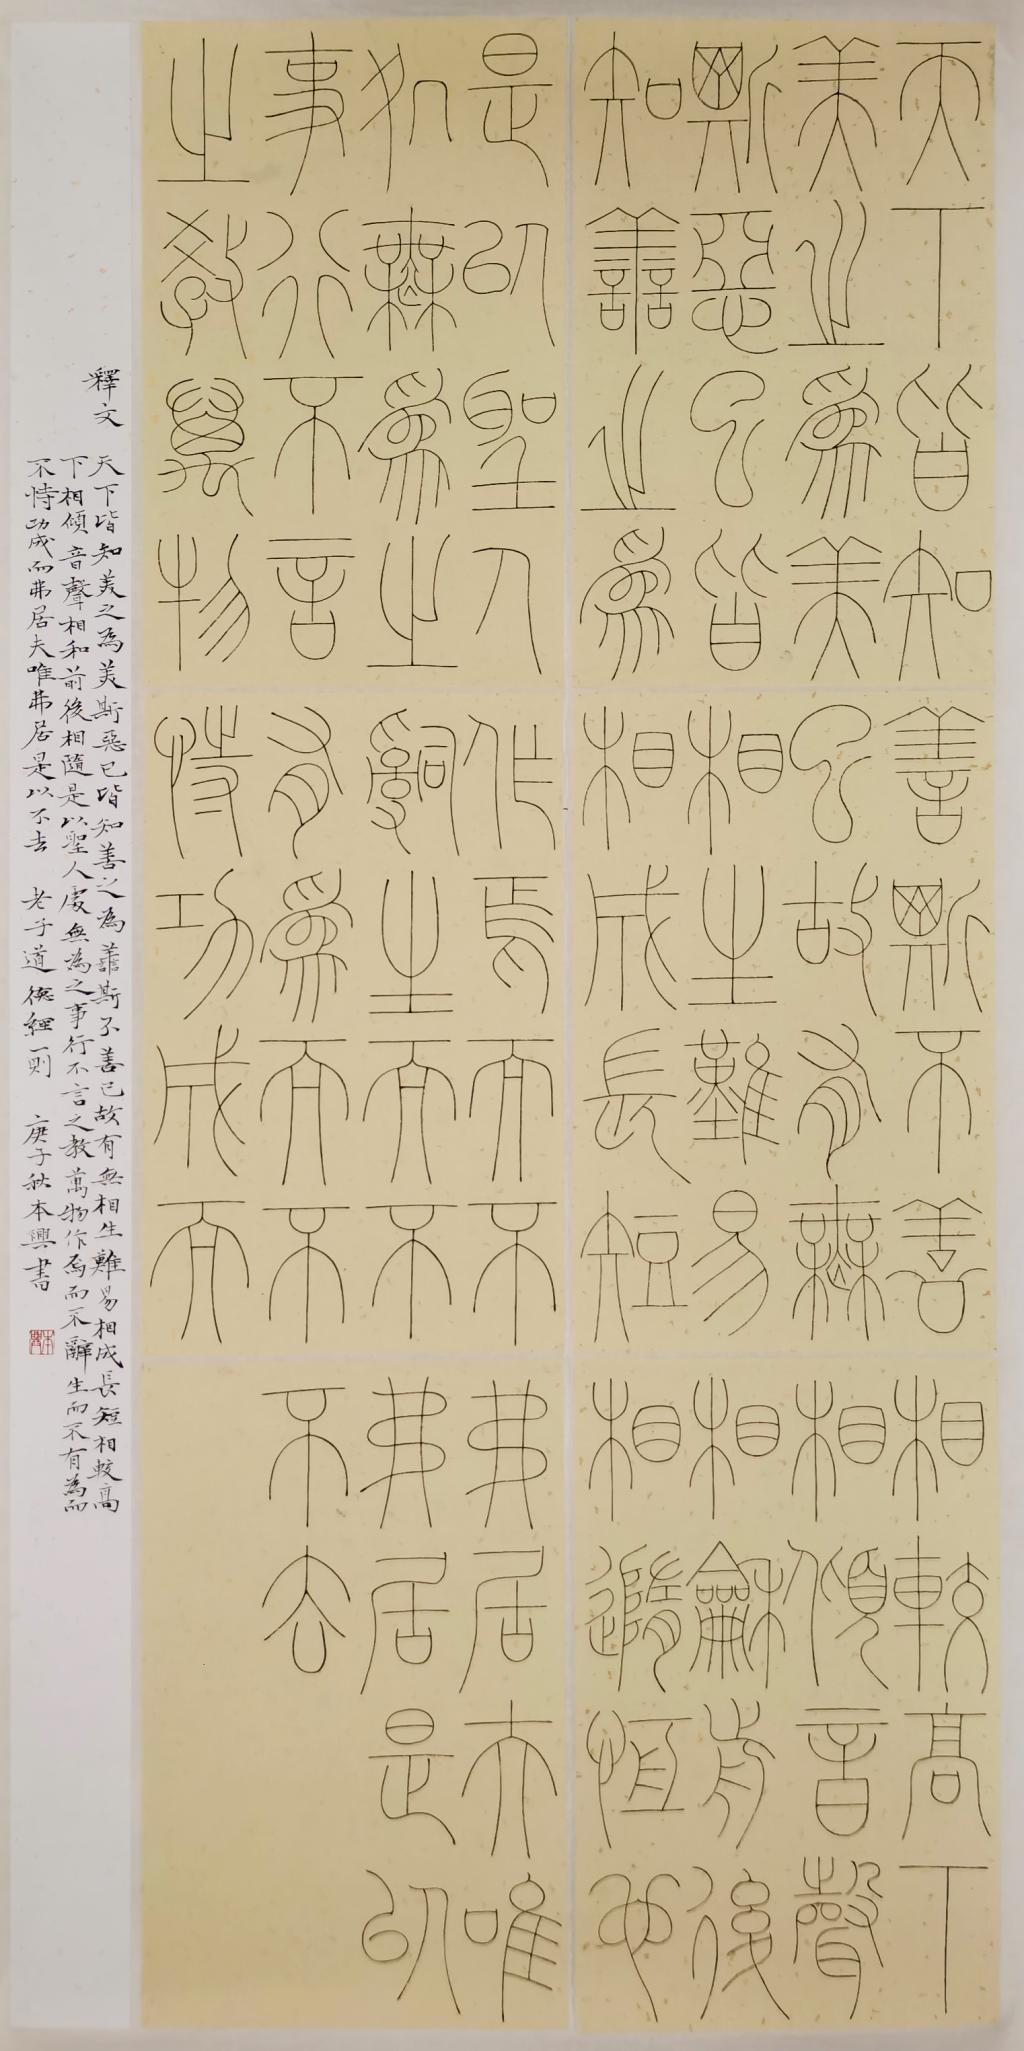 天下皆知
美之為美
斯惡已皆
知善之為
善斯不善
已故有無
相生難易
相成長短
相較高下
相傾音聲
相龢前後
相隨恒也
是以聖人
処無為之
事行不言
之教萬物
作焉而不
辭生而不
有為而不
恃功成而
弗居夫唯
弗居是以
不去
釋文 天下皆知美之為美斯惡已皆知善之為譱斯不善已故有無相生難易相成長短相較高
下相傾音聲相和前後相隨是以聖人處無為之事行不言之教萬物作焉而不辭生而不有為而
不恃功成而弗居夫唯弗居是以不去 老子道德經一則 庚子秋本興書
本興